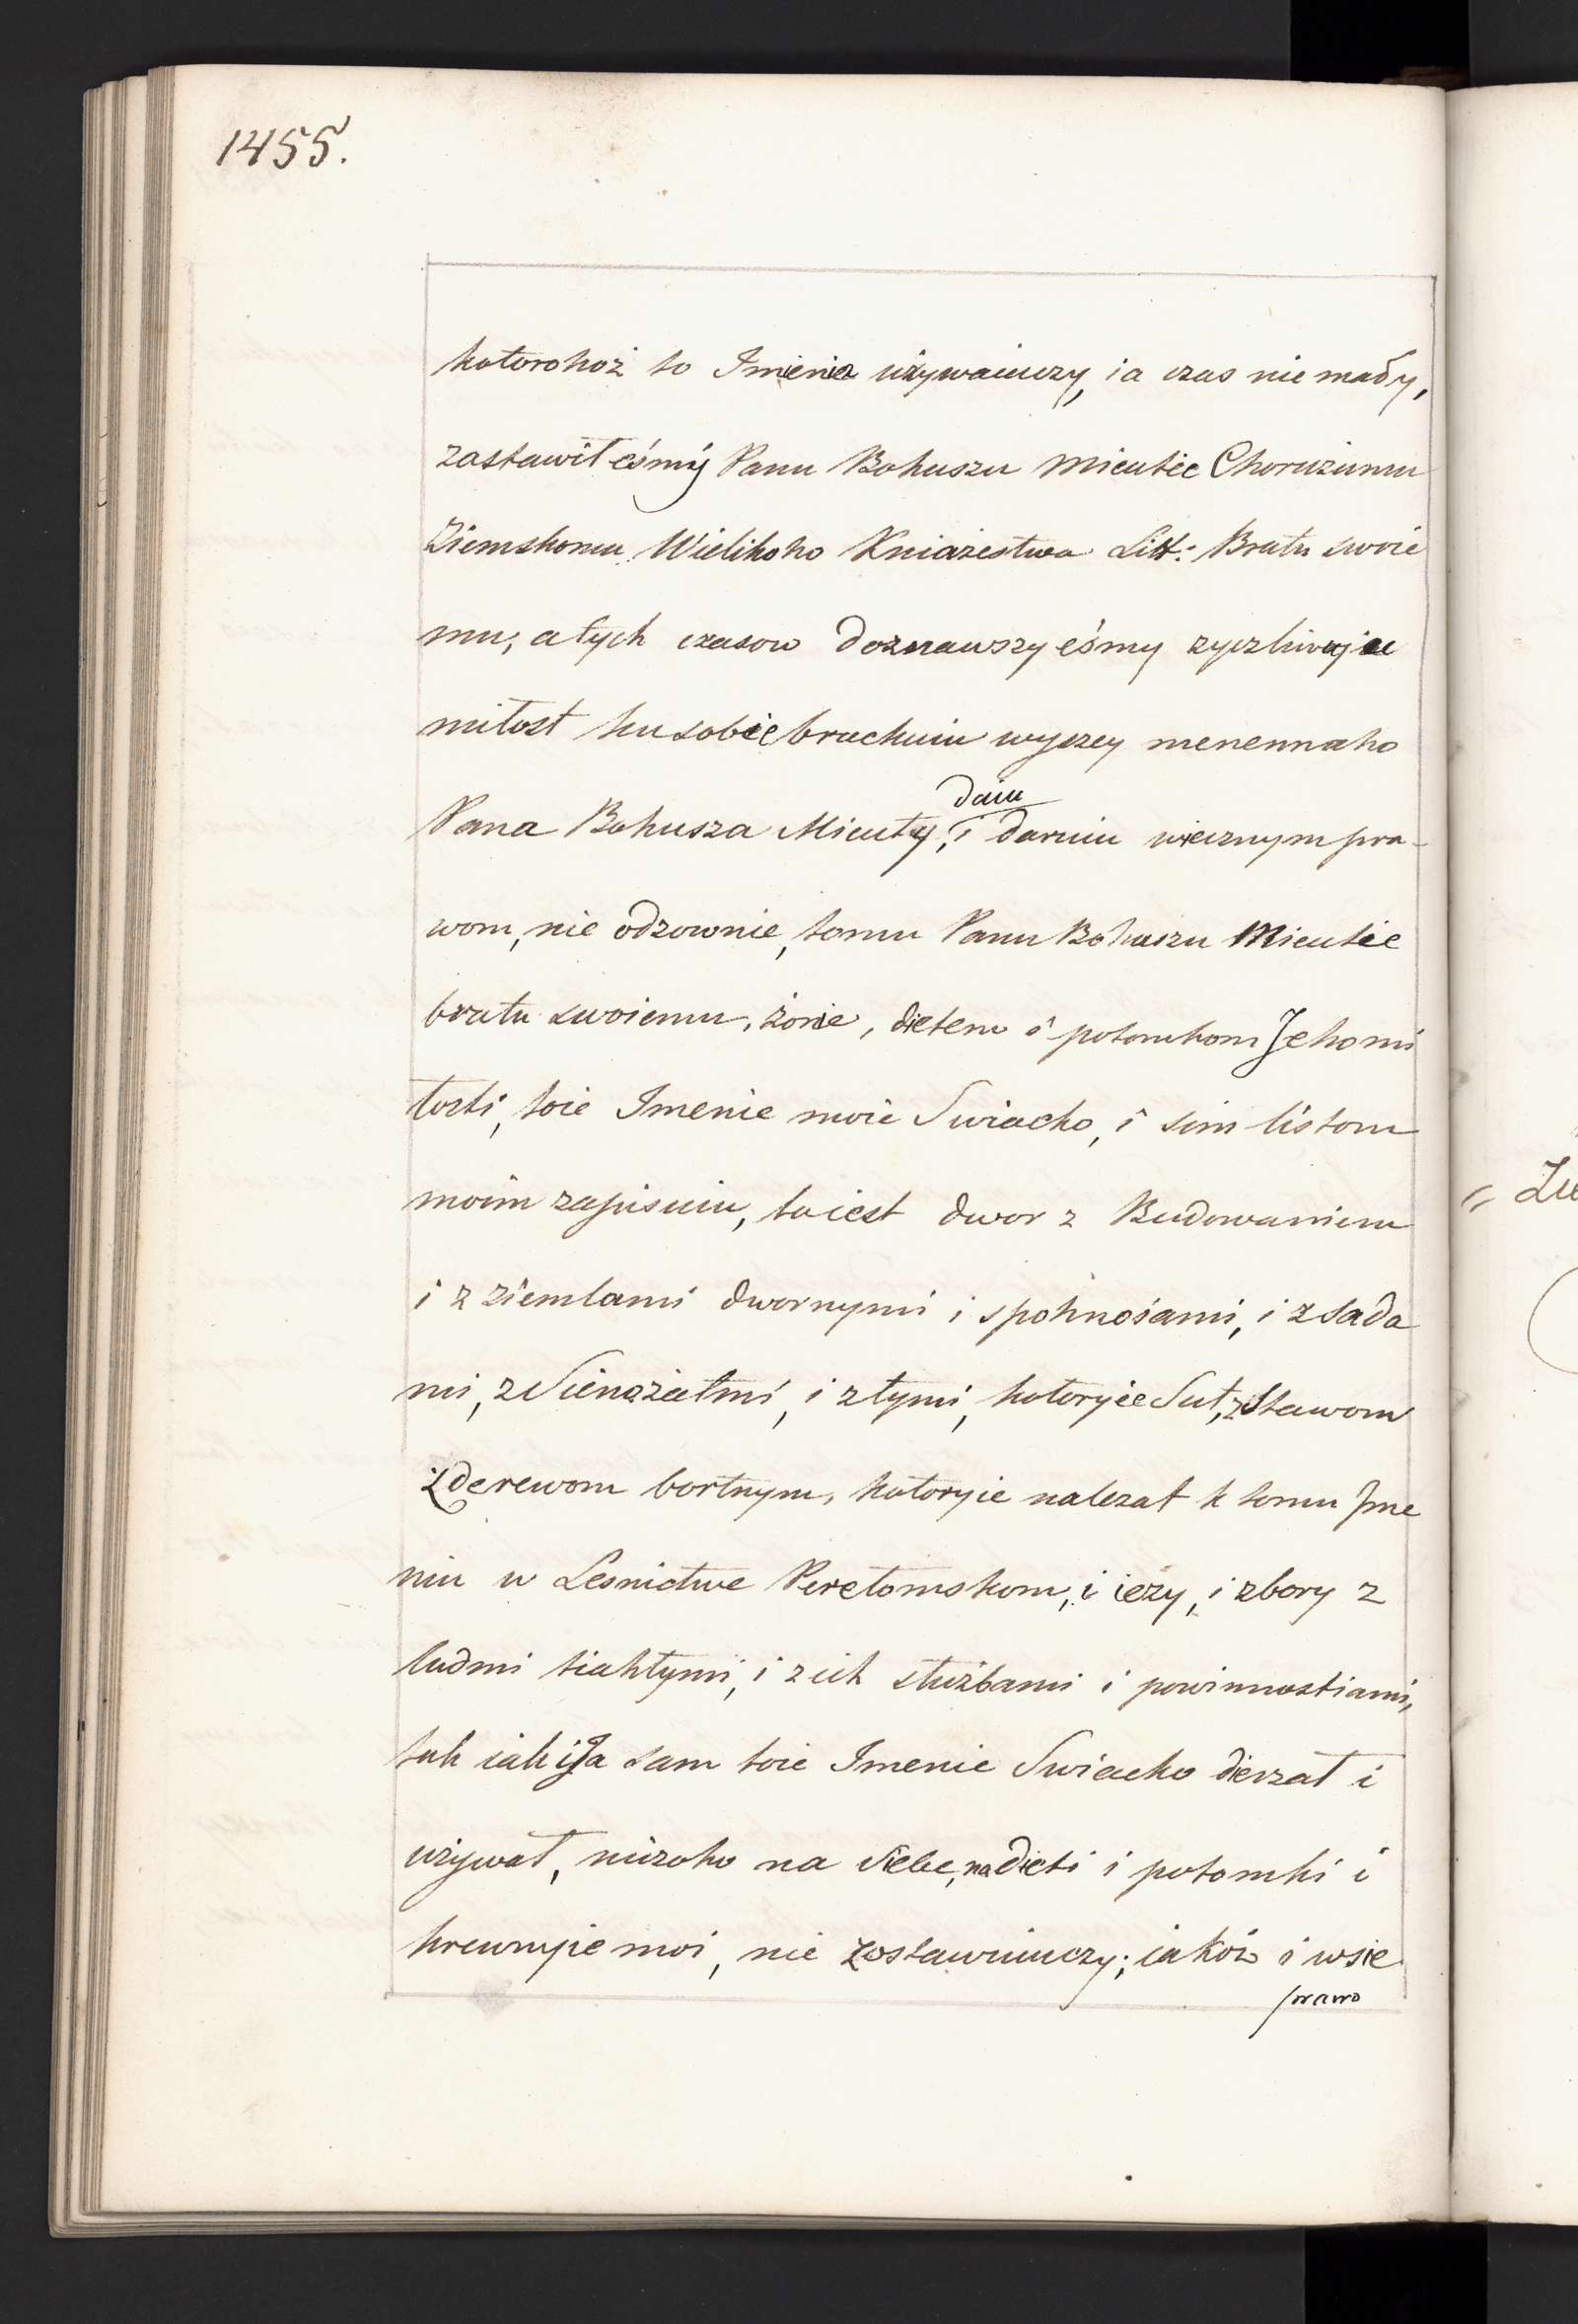 1455.
kotorohoż to Imenia używaiuczy, ia czas nie mały,
zastawił eśmy Panu Bohuszu Micutie Choružomu
Ziemskomu Wielikoho Kniażestwa Litt: Bratu swoie
mu, a tych czasow doznawszy eśmy zyczliwuju
miłost ku sobie brackuiu wyszey menennaho
Pana Bohusza Micuty, daiu i daruiu wiecznym pra-
wom, nie odzownie, tomu Panu Bohuszu Micutie
bratu swoiemu, żonie, dietem i potomkom Jeho mi
łosti, toie Imenie moie Swiacko, i sim listom
moim zapisuiu, to iest dwor z Budowaniem
i z ziemlami dwornymi i spohnośami, i z sada
mi, z Sienożatmi, i z tymi, kotoryie Sut, z Stawom
z derewom bortnym, kotoryie nalezat k tomu Jme
niu w Lesnictwe Peretomskom, i iezy, i zbory z
ludmi tiahłymi, i z ich służbami i powinnostiami,
tak iak i Ja sam toie Imenie Swiacko dierzał i
używał, niczoho na Siebe, na dieti i potomki i
krewnyie moi, nie zostawuiuczy; iakoż i wsie
prawo
Zu